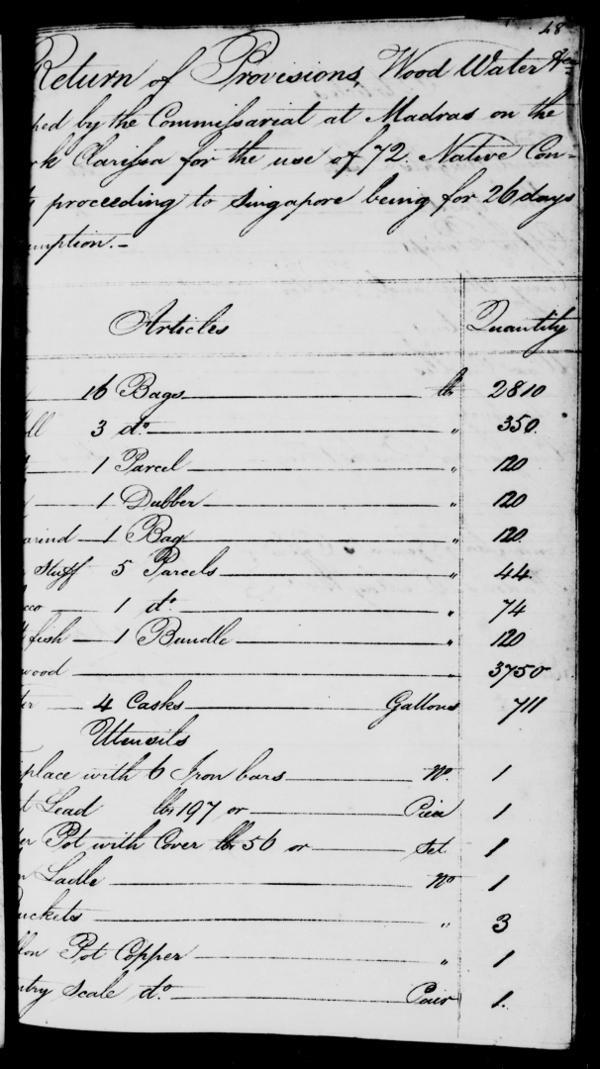 48
Return of Provisions, Wood Water &ca
ped by the Commissariat at Madras on the
rk Clarissa for the use of 72 Native Con-
proceeding to Singapore being for 26 days
umption.-
Articles Quantity
16 Bags lb 2810
ll 3 do " 350
1 Parcel " 120
1 Dubber " 120
arind 1 Bag " 120
Stuff 5 Parcels " 44
cco 1 do " 74
fish 1 Bundle " 120
wood " 3750
er 4 Casks Gallons 711
Utensils
place with 6 Iron bars No. 1
t Lead lbs 197 or Piece 1
er Pot with Cover lbs 56 or Set 1
n Ladle No 1
uckets " 3
llon Pot Copper " 1
ntry Scale do. Pair 1.